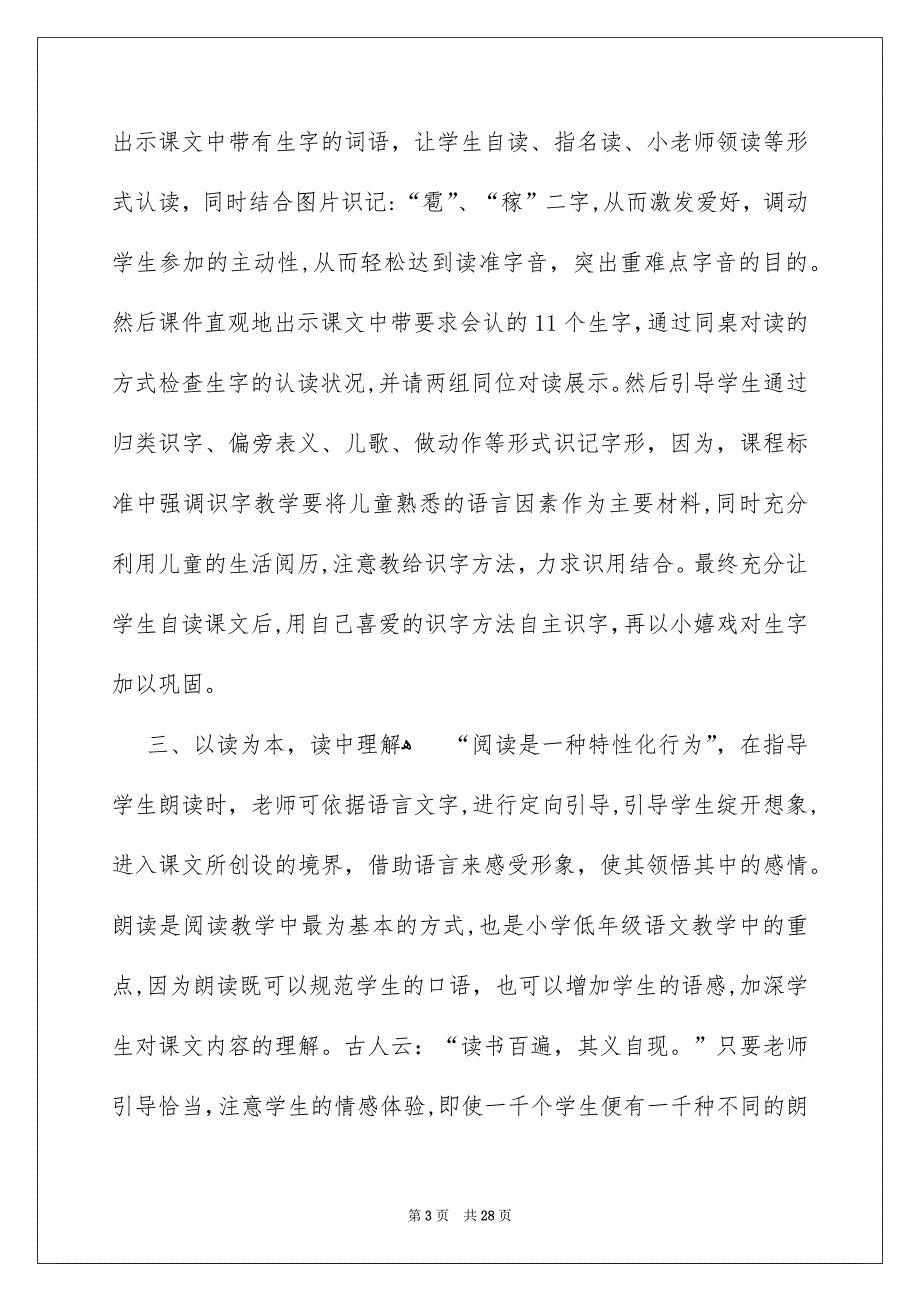 出示课文中带有生字的词语，让学生自读、指名读、小老师领读等形
式认读，同时结合图片识记:“雹”、“稼”二字,从而激发爱好，调动
学生参加的主动性,从而轻松达到读准字音，突出重难点字音的目的。
然后课件直观地出示课文中带要求会认的 11 个生字,通过同桌对读的
方式检查生字的认读状况,并请两组同位对读展示。然后引导学生通过
归类识字、偏旁表义、儿歌、做动作等形式识记字形，因为，课程标
准中强调识字教学要将儿童熟悉的语言因素作为主要材料,同时充分
利用儿童的生活阅历,注意教给识字方法，力求识用结合。最终充分让
学生自读课文后,用自己喜爱的识字方法自主识字,再以小嬉戏对生字
加以巩固。
三、以读为本，读中理解ﻫ “阅读是一种特性化行为”，在指导
学生朗读时，老师可依据语言文字,进行定向引导,引导学生绽开想象,
进入课文所创设的境界，借助语言来感受形象，使其领悟其中的感情。
朗读是阅读教学中最为基本的方式,也是小学低年级语文教学中的重
点,因为朗读既可以规范学生的口语，也可以增加学生的语感,加深学
生对课文内容的理解。古人云：“读书百遍，其义自现。”只要老师
引导恰当,注意学生的情感体验,即使一千个学生便有一千种不同的朗
第 3 页 共 28 页